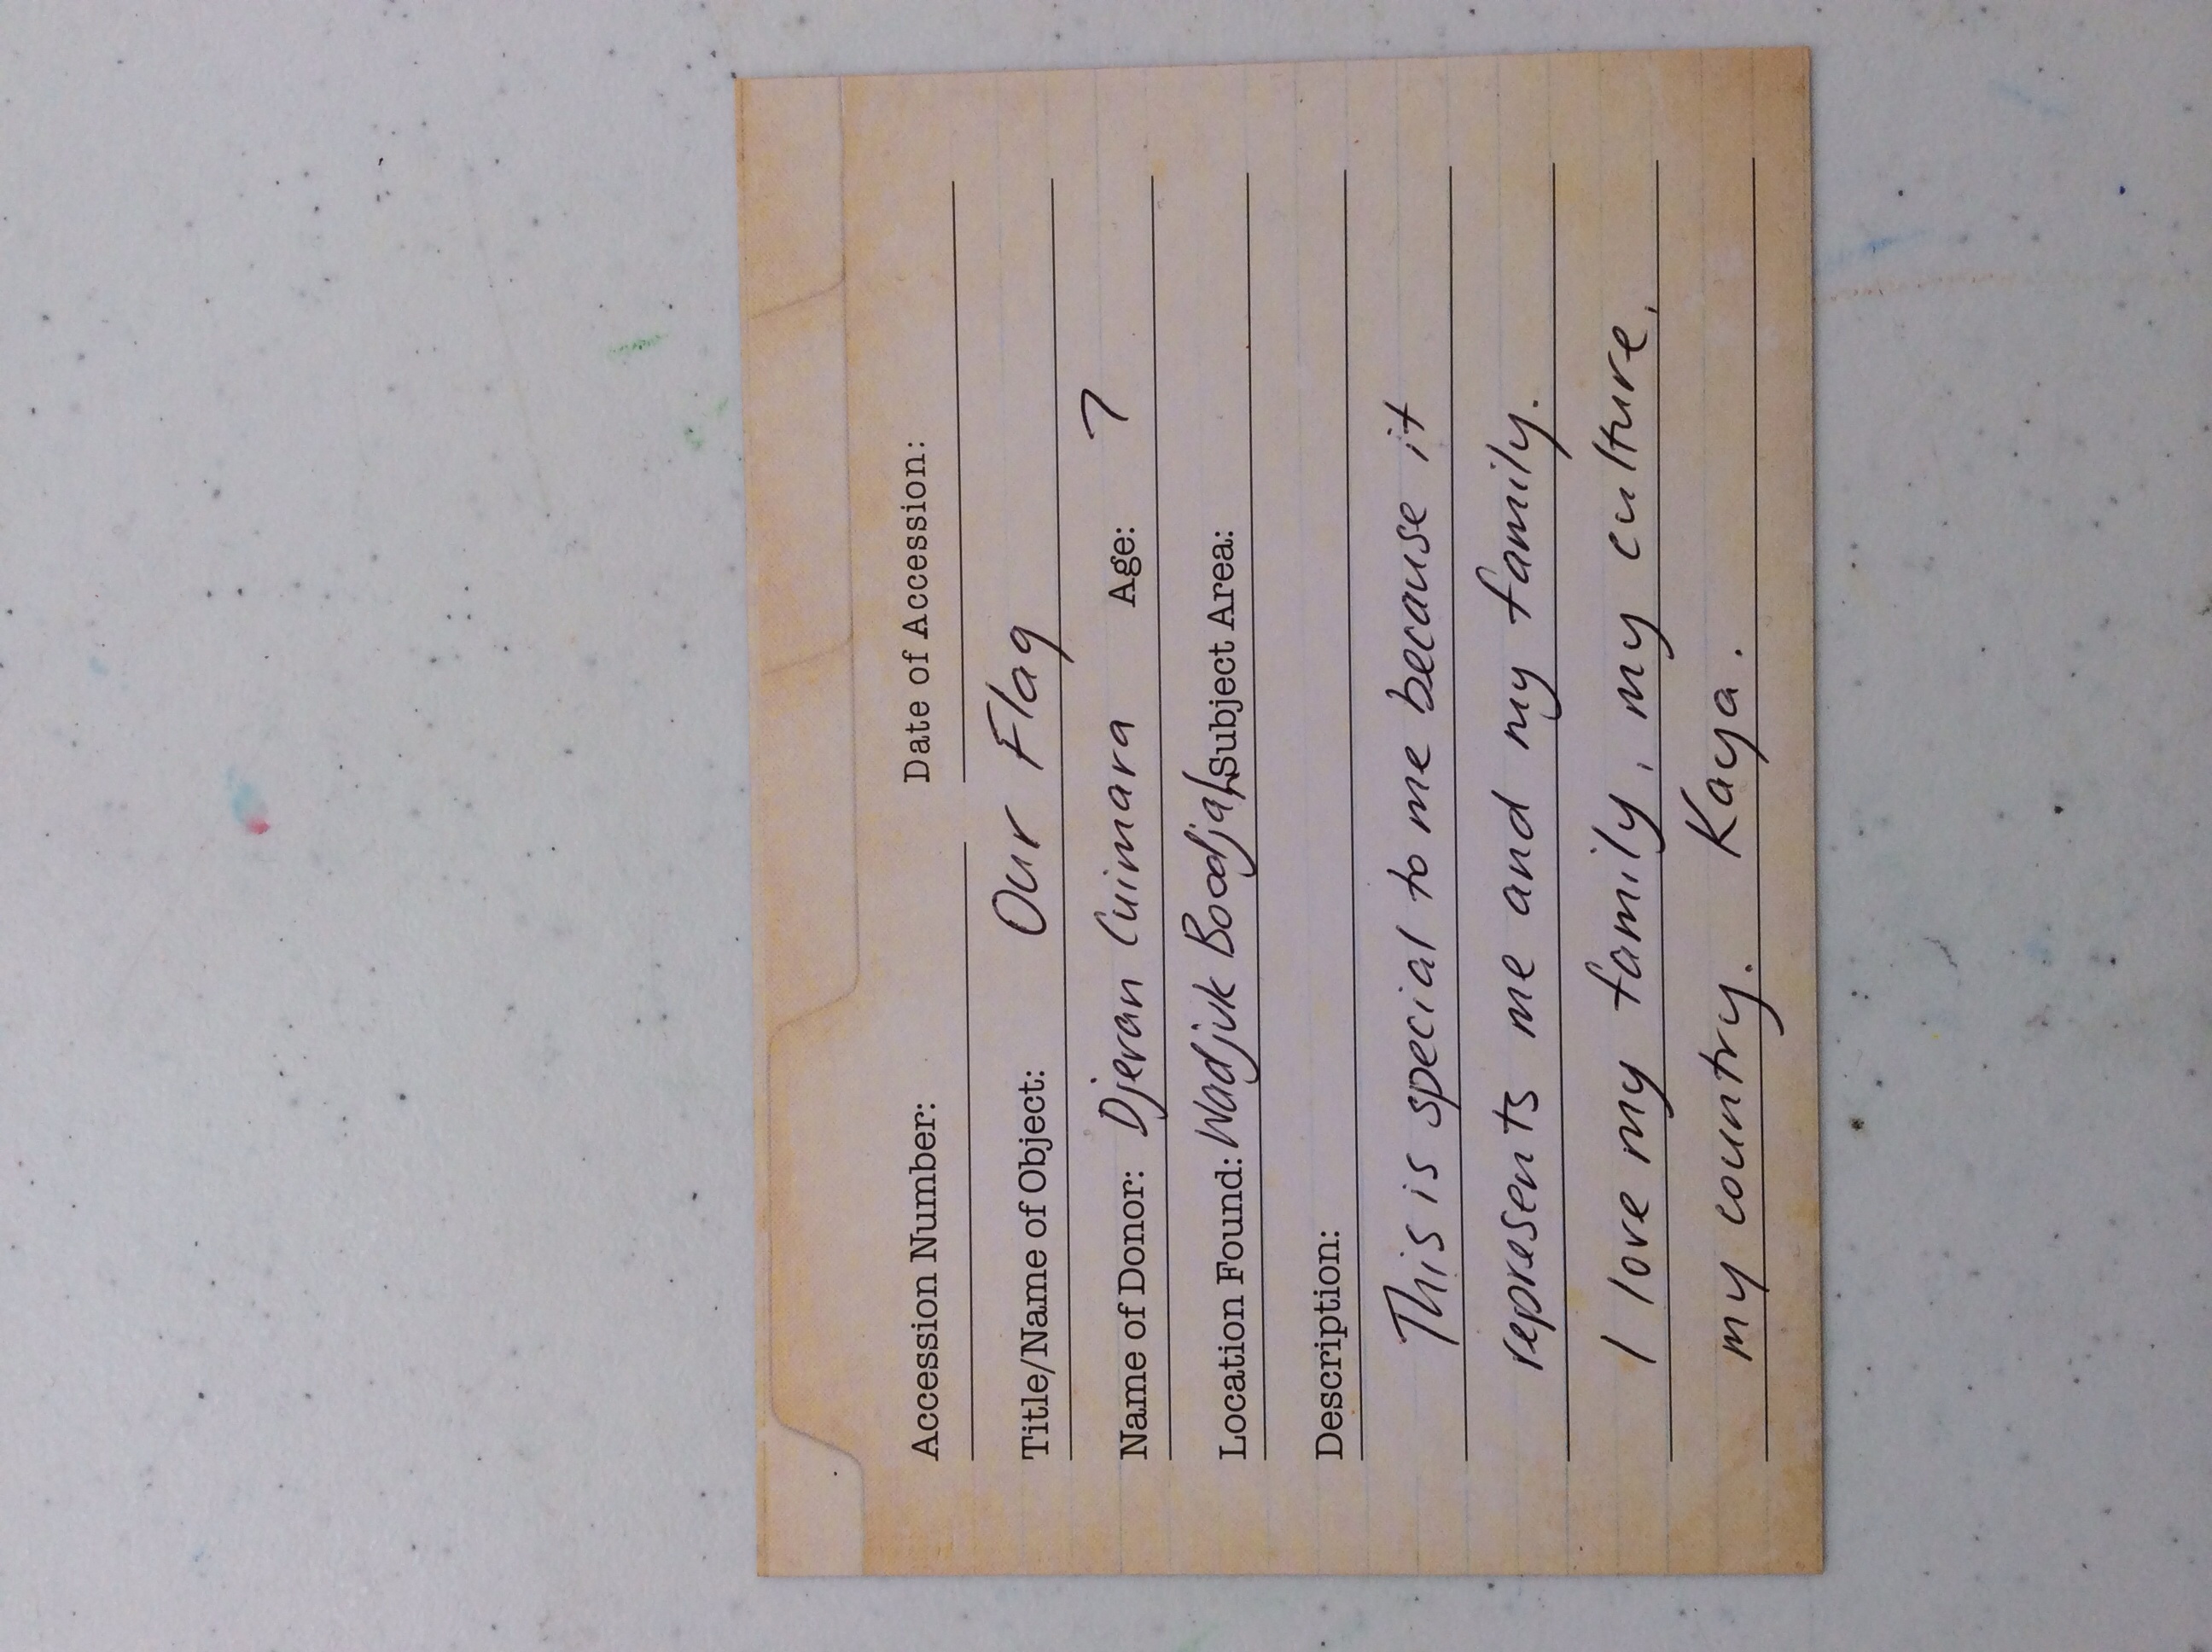 Accession Number: Date of Accession:
Title/Name of Object: Our Flag
Name of Donor: Djeran Cuimara Age: 7
Location Found: Wadjuk Boodjah Subject Area:
Description:
This is special to me because it
represents me and my family.
I love my family, my culture,
my country. Kaya.